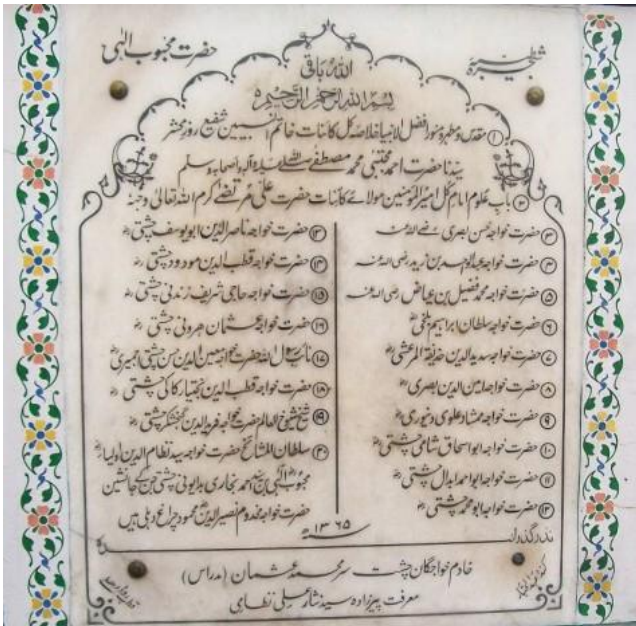 شجرہ طیبہ
حضرت محبوب الٰہی
اللہ باقی
بسم اللہ الرحمن الرحیم
① مقدس و مطہر و منور افضل الانبیا خلاصہ کل کائنات خاتم النبیین شفیع روز محشر
سیدنا حضرت احمد مجتبیٰ محمد مصطفےٰ صلے اللہ علیہ وآلہ واصحابہ وسلم
② باب علوم امام کل امیر المومنین مولائے کائنات حضرت علی مرتضےٰ کرم اللہ تعالیٰ وجہہ
③ حضرت خواجہ حسن بصری رضے اللہ عنہ
④ حضرت خواجہ عبدالواحد بن زید رضی اللہ عنہ
⑤ حضرت خواجہ محمد فضیل بن عیاض رضی اللہ عنہ
⑥ حضرت خواجہ سلطان ابراہیم بلخی رح
⑦ حضرت خواجہ سدید الدین حذیقۃ المرعشی رح
⑧ حضرت خواجہ امین الدین بصری رح
⑨ حضرت خواجہ ممشاد علوی دنیوری رح
⑩ حضرت خواجہ ابو اسحاق شامی چشتی رح
⑪ حضرت خواجہ ابو احمد ابدال چشتی رح
⑫ حضرت خواجہ ابو محمد چشتی رح
⑬ حضرت خواجہ ناصر الدین ابو یوسف چشتی رح
⑭ حضرت خواجہ قطب الدین مودود چشتی رح
⑮ حضرت خواجہ حاجی شریف زندنی چشتی رح
⑯ حضرت خواجہ عثمان ہرونی چشتی رح
⑰ نائب رسول اللہ حضرت خواجہ معین الدین حسن چشتی اجمیری رح
⑱ حضرت خواجہ قطب الدین بختیار کاکی چشتی رح
⑲ شیخ شیوخ العالم حضرت خواجہ فرید الدین گنجشکر چشتی رح
⑳ سلطان المشائخ حضرت خواجہ سید نظام الدین اولیا رح
محبوب الٰہی بن سید احمد بخاری بدایونی چشتی جن کے جانشین
حضرت خواجہ مخدوم نصیر الدین محمود چراغ دہلی ہیں
۱۳۶۵ھ
نذر گذرانندہ
خادم خواجگان چشت سر محمد عثمان (مدراس)
معرفت پیرزادہ سید نثار علی نظامی